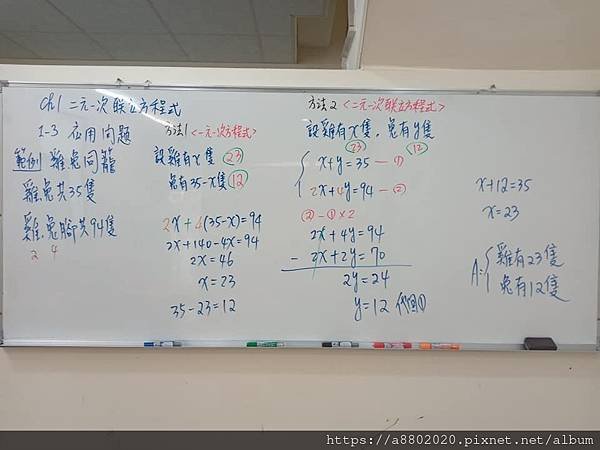 ch1 二元一次联立方程式
1-3 应用问题
範例 雞兔同籠
雞.兔共35隻
雞.兔腳共94隻
2 4
方法1<一元一次方程式>
設雞有x隻 23
兔有35-x隻 12
2x+4(35-x)=94
2x+140-4x=94
2x=46
x=23
35-23=12
方法2<二元一次联立方程式>
設雞有x隻,兔有y隻
23 12
x+y=35 —①
2x+4y=94 —②
②-①×2
2x+4y=94
- 2x+2y=70
2y=24
y=12 代回①
x+12=35
x=23
A:{雞有23隻
兔有12隻
https://a8802020.pixnet.net/album